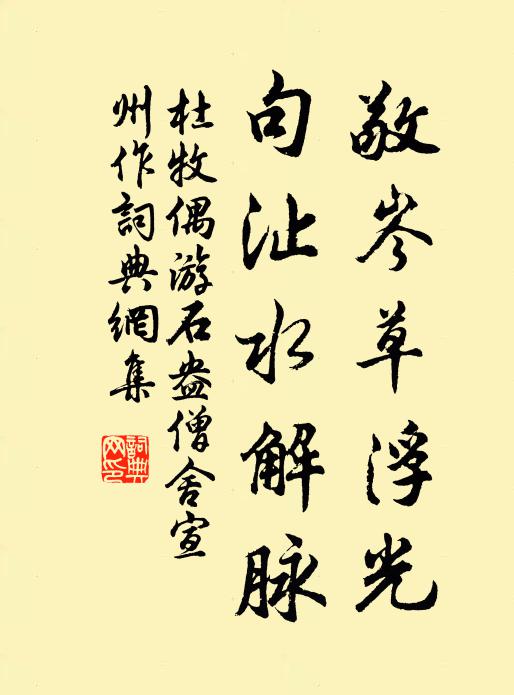 敬岑草浮光
句沚水解脉
杜牧偶游石盎僧舍宣
州作詞典網集
詞典
网印